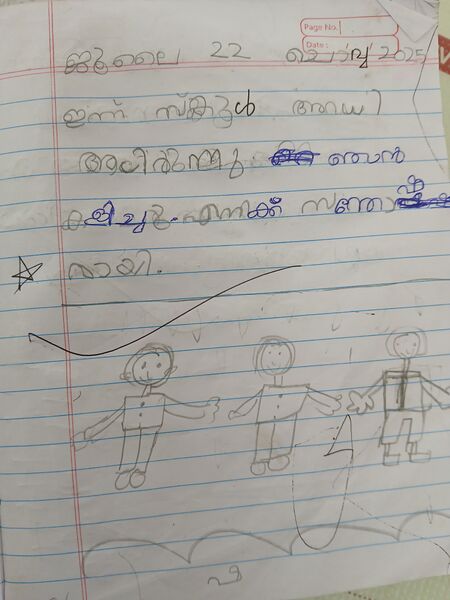 Page No.
Date:
ജൂലൈ 22 ചൊവ്വ 2025
ഇന്ന് സ്കൂൾ അവധി
ആയിരുന്നു ഞാൻ
കളിച്ചു. എനിക്ക് സന്തോഷ
മായി.